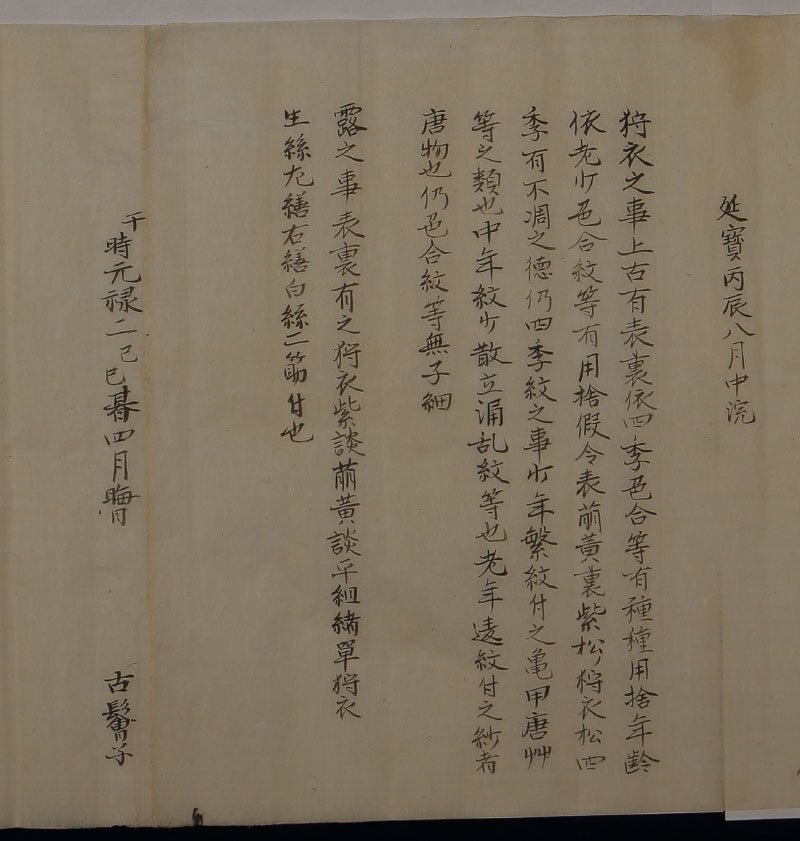 延寶丙辰八月中浣
狩衣之事上古有表裏依四季色合等有種種用捨年齢
依老少色合紋等有用捨假令表萠黄裏紫松狩衣松四
季有不凋之徳仍四季紋之事少年繁紋付之亀甲唐艸
等之類也中年紋少散立涌乱紋等也老年遠紋付之紗者
唐物也仍色合紋等無子細
露之事表裏有之狩衣紫談萠黄談平組緒單狩衣
生絲左繕右繕白絲二筋付也
干時元禄二己巳暮四月晦日
古鬢子